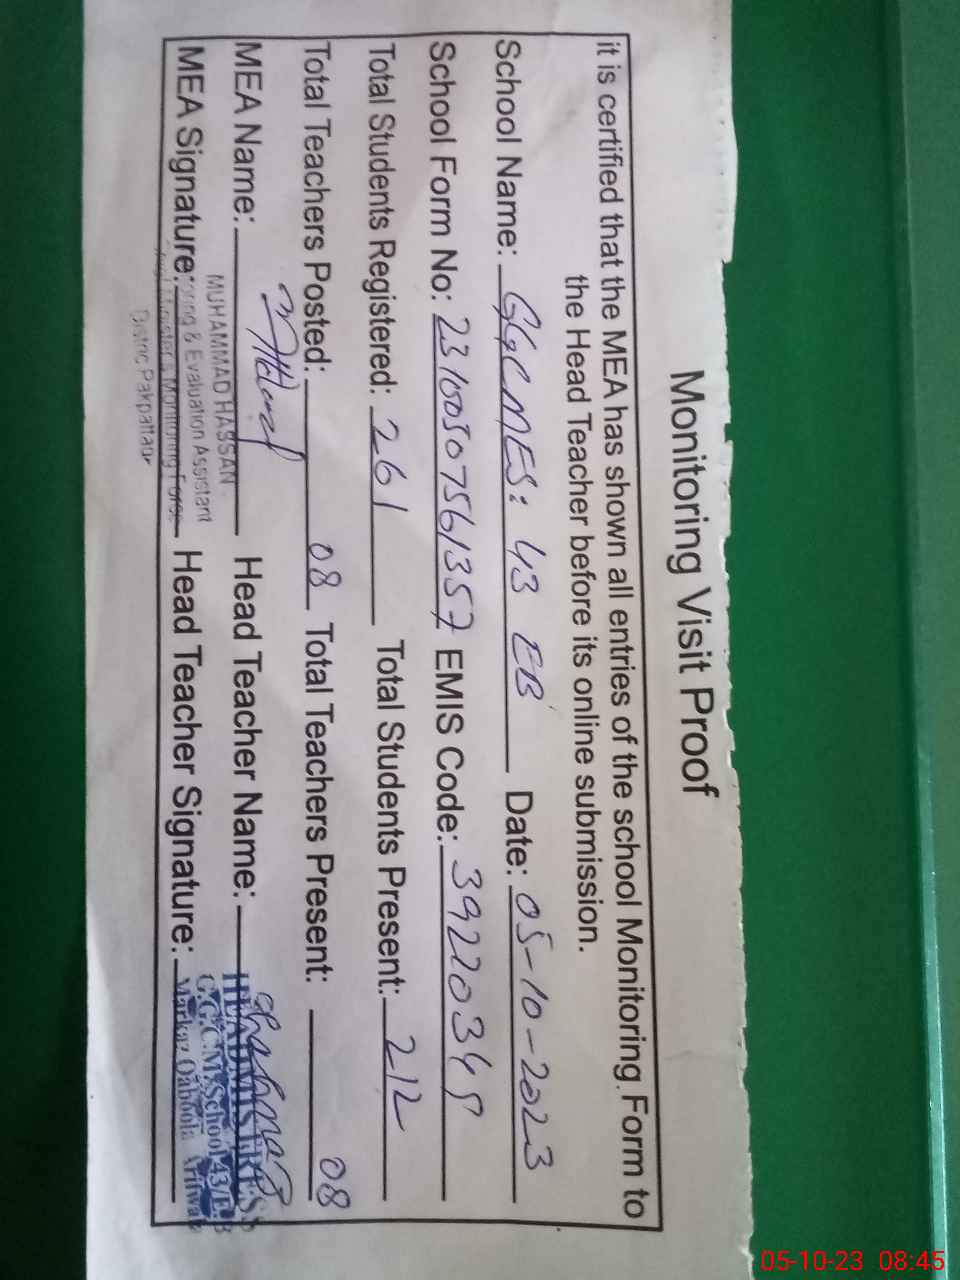 Monitoring Visit Proof
it is certified that the MEA has shown all entries of the school Monitoring Form to
the Head Teacher before its online submission.
School Name: GGCMES: 43 EB Date: 05-10-2023
School Form No: EMIS Code:
Total Students Registered: 261 Total Students Present: 212
Total Teachers Posted: 08 Total Teachers Present: 08
MEA Name: Head Teacher Name:
MUHAMMAD HASSAN
MEA Signature: Head Teacher Signature:
& Evaluation Assistant
Monitoring Force
Distric Pakpattan
HEADMISTRESS
G.G.C.M School 43/E.B
Markaz Qaboola Arifwala
05-10-23 08:45